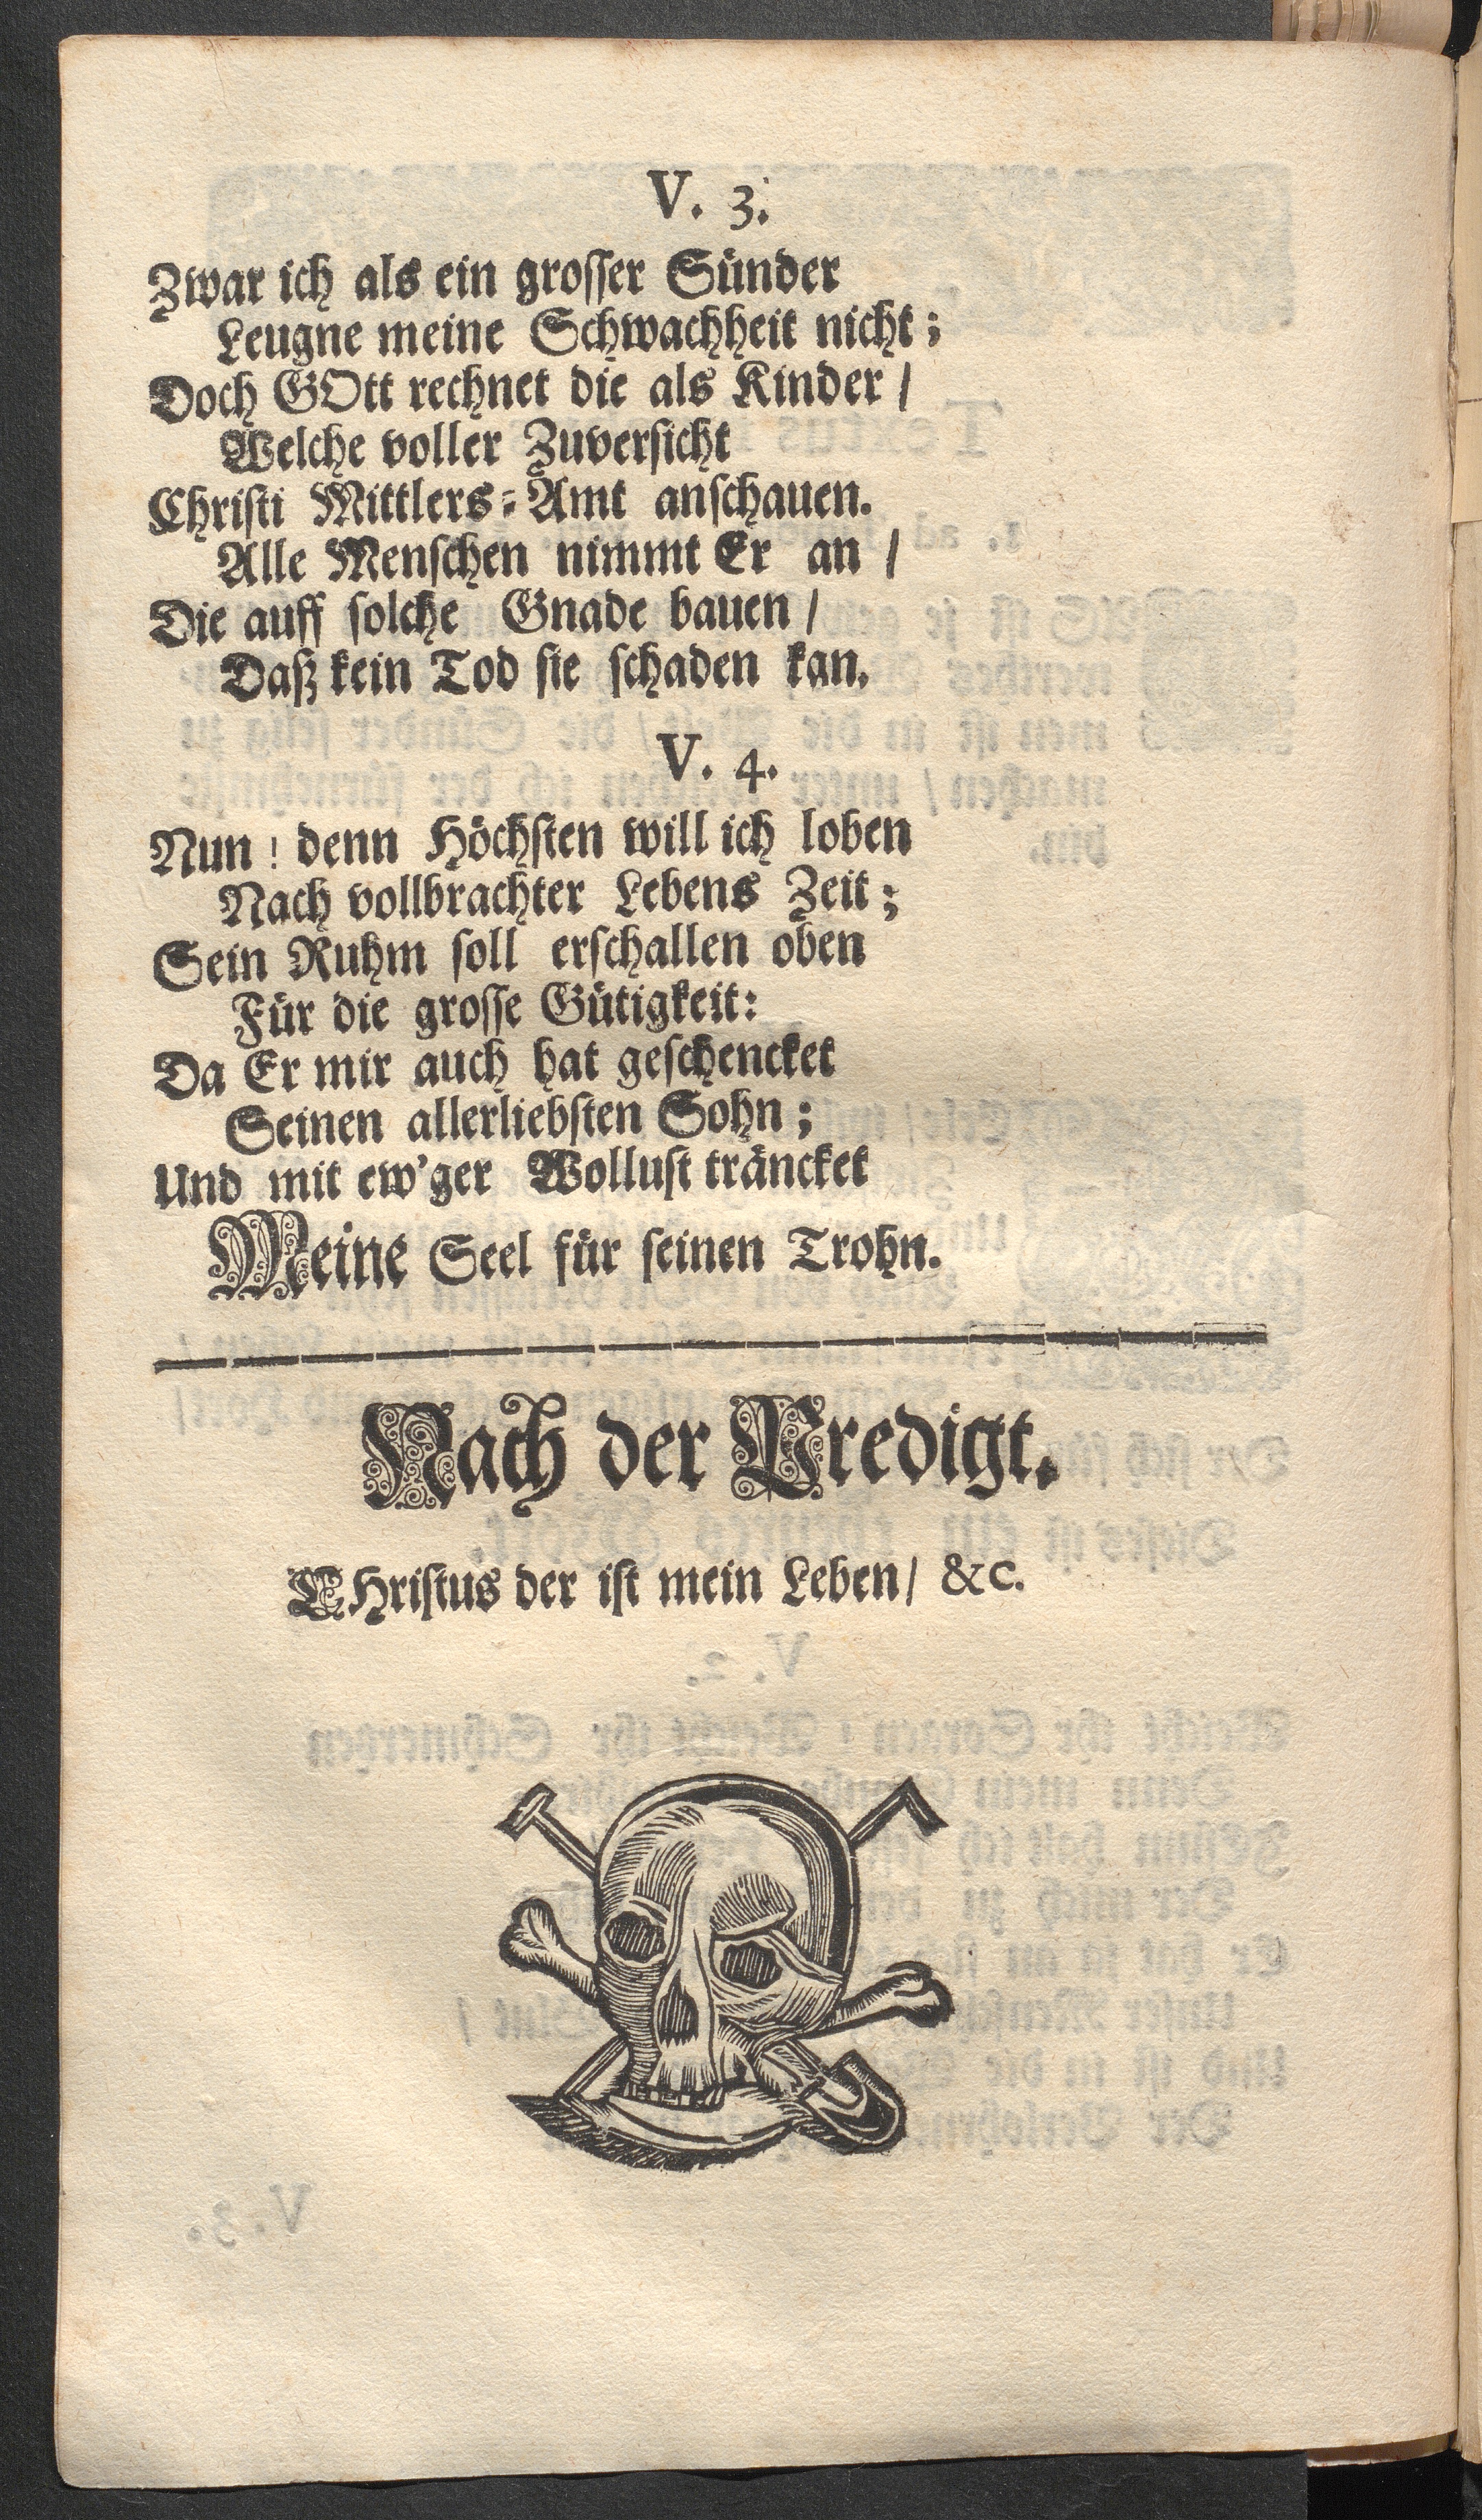 V. 3.
Zwar ich als ein groſſer Sünder
Leugne meine Schwachheit nicht;
Doch GOtt rechnet die als Kinder /
Welche voller Zuverſicht
Chriſti Mittlers-Amt anſchauen.
Alle Menſchen nimmt Er an /
Die auff ſolche Gnade bauen /
Daß kein Tod ſie ſchaden kan.
V. 4.
Nun! denn Höchſten will ich loben
Nach vollbrachter Lebens Zeit;
Sein Ruhm ſoll erſchallen oben
Für die groſſe Gütigkeit:
Da Er mir auch hat geſchencket
Seinen allerliebſten Sohn;
Und mit ew'ger Wolluſt träncket
Meine Seel für ſeinen Trohn.
Nach der Predigt.
CHriſtus der iſt mein Leben / &c.